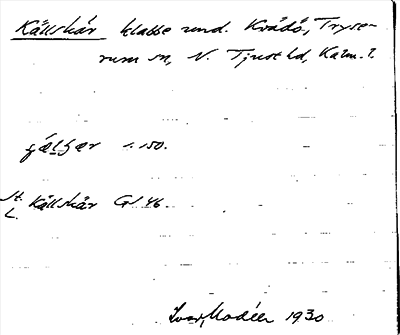 Källskär klabbe und. Kvädö, Tryse-
rum sn, N. Tjust hd, Kalm. l.
s. 150.
St. Källskär GS 46.
L.
Ivar Modéer 1930